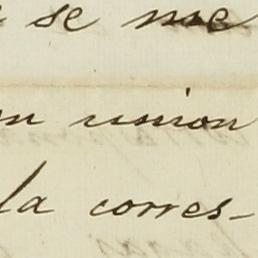 se me
en union
la corres-